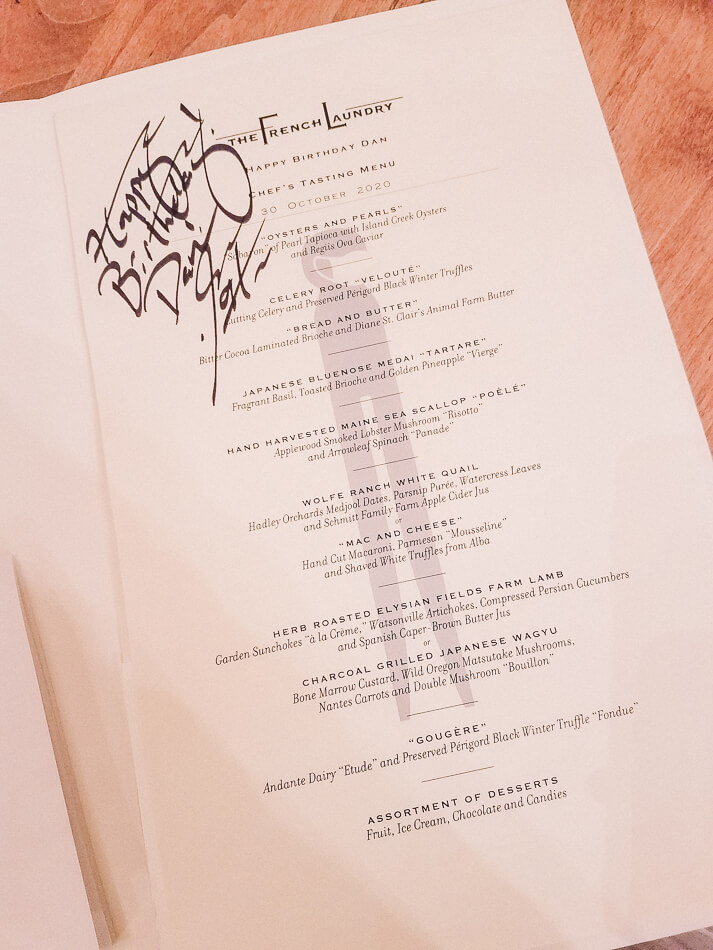 THE FRENCH LAUNDRY
HAPPY BIRTHDAY DAN
CHEF'S TASTING MENU
30 OCTOBER 2020
Happy
Birthday!
Dan,
"OYSTERS AND PEARLS"
of Pearl Tapioca with Island Creek Oysters
and Regiis Ova Caviar
CELERY ROOT "VELOUTÉ"
Cutting Celery and Preserved Périgord Black Winter Truffles
"BREAD AND BUTTER"
Bitter Cocoa Laminated Brioche and Diane St. Clair's Animal Farm Butter
JAPANESE BLUENOSE MEDAI "TARTARE"
Fragrant Basil, Toasted Brioche and Golden Pineapple "Vierge"
HAND HARVESTED MAINE SEA SCALLOP "POÊLÉ"
Applewood Smoked Lobster Mushroom "Risotto"
and Arrowleaf Spinach "Panade"
WOLFE RANCH WHITE QUAIL
Hadley Orchards Medjool Dates, Parsnip Purée, Watercress Leaves
and Schmitt Family Farm Apple Cider Jus
or
"MAC AND CHEESE"
Hand Cut Macaroni, Parmesan "Mousseline"
and Shaved White Truffles from Alba
HERB ROASTED ELYSIAN FIELDS FARM LAMB
Garden Sunchokes "à la Crème," Watsonville Artichokes, Compressed Persian Cucumbers
and Spanish Caper-Brown Butter Jus
or
CHARCOAL GRILLED JAPANESE WAGYU
Bone Marrow Custard, Wild Oregon Matsutake Mushrooms,
Nantes Carrots and Double Mushroom "Bouillon"
"GOUGÈRE"
Andante Dairy "Etude" and Preserved Périgord Black Winter Truffle "Fondue"
ASSORTMENT OF DESSERTS
Fruit, Ice Cream, Chocolate and Candies